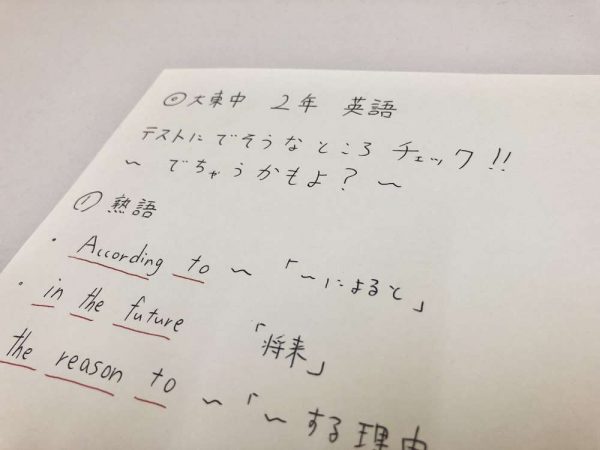 ◎大東中 2年 英語
テストにでそうなところ チェック!!
～ でちゃうかもよ? ～
① 熟語
・According to ～ 「～によると」
・in the future 「将来」
the reason to ～ 「～する理由